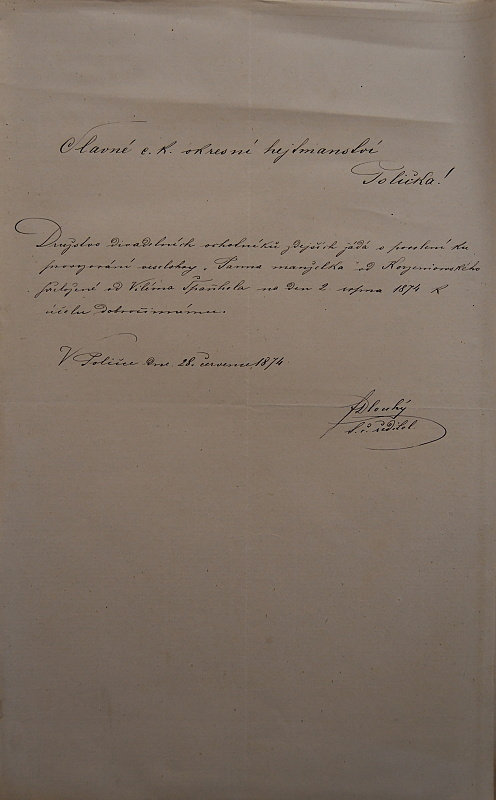 Slavné c. k. okresní hejtmanství
Polička!
Družstvo divadelních ochotníků zdejších žádá o povolení ku
provozování veselohry „Panna manželka" od Korzeniowského
přeložené od Viléma Španhela na den 2. srpna 1874 k
účelu dobročinnému.
V Poličce dne 28. července 1874
J Dlouhý
t. č. ředitel